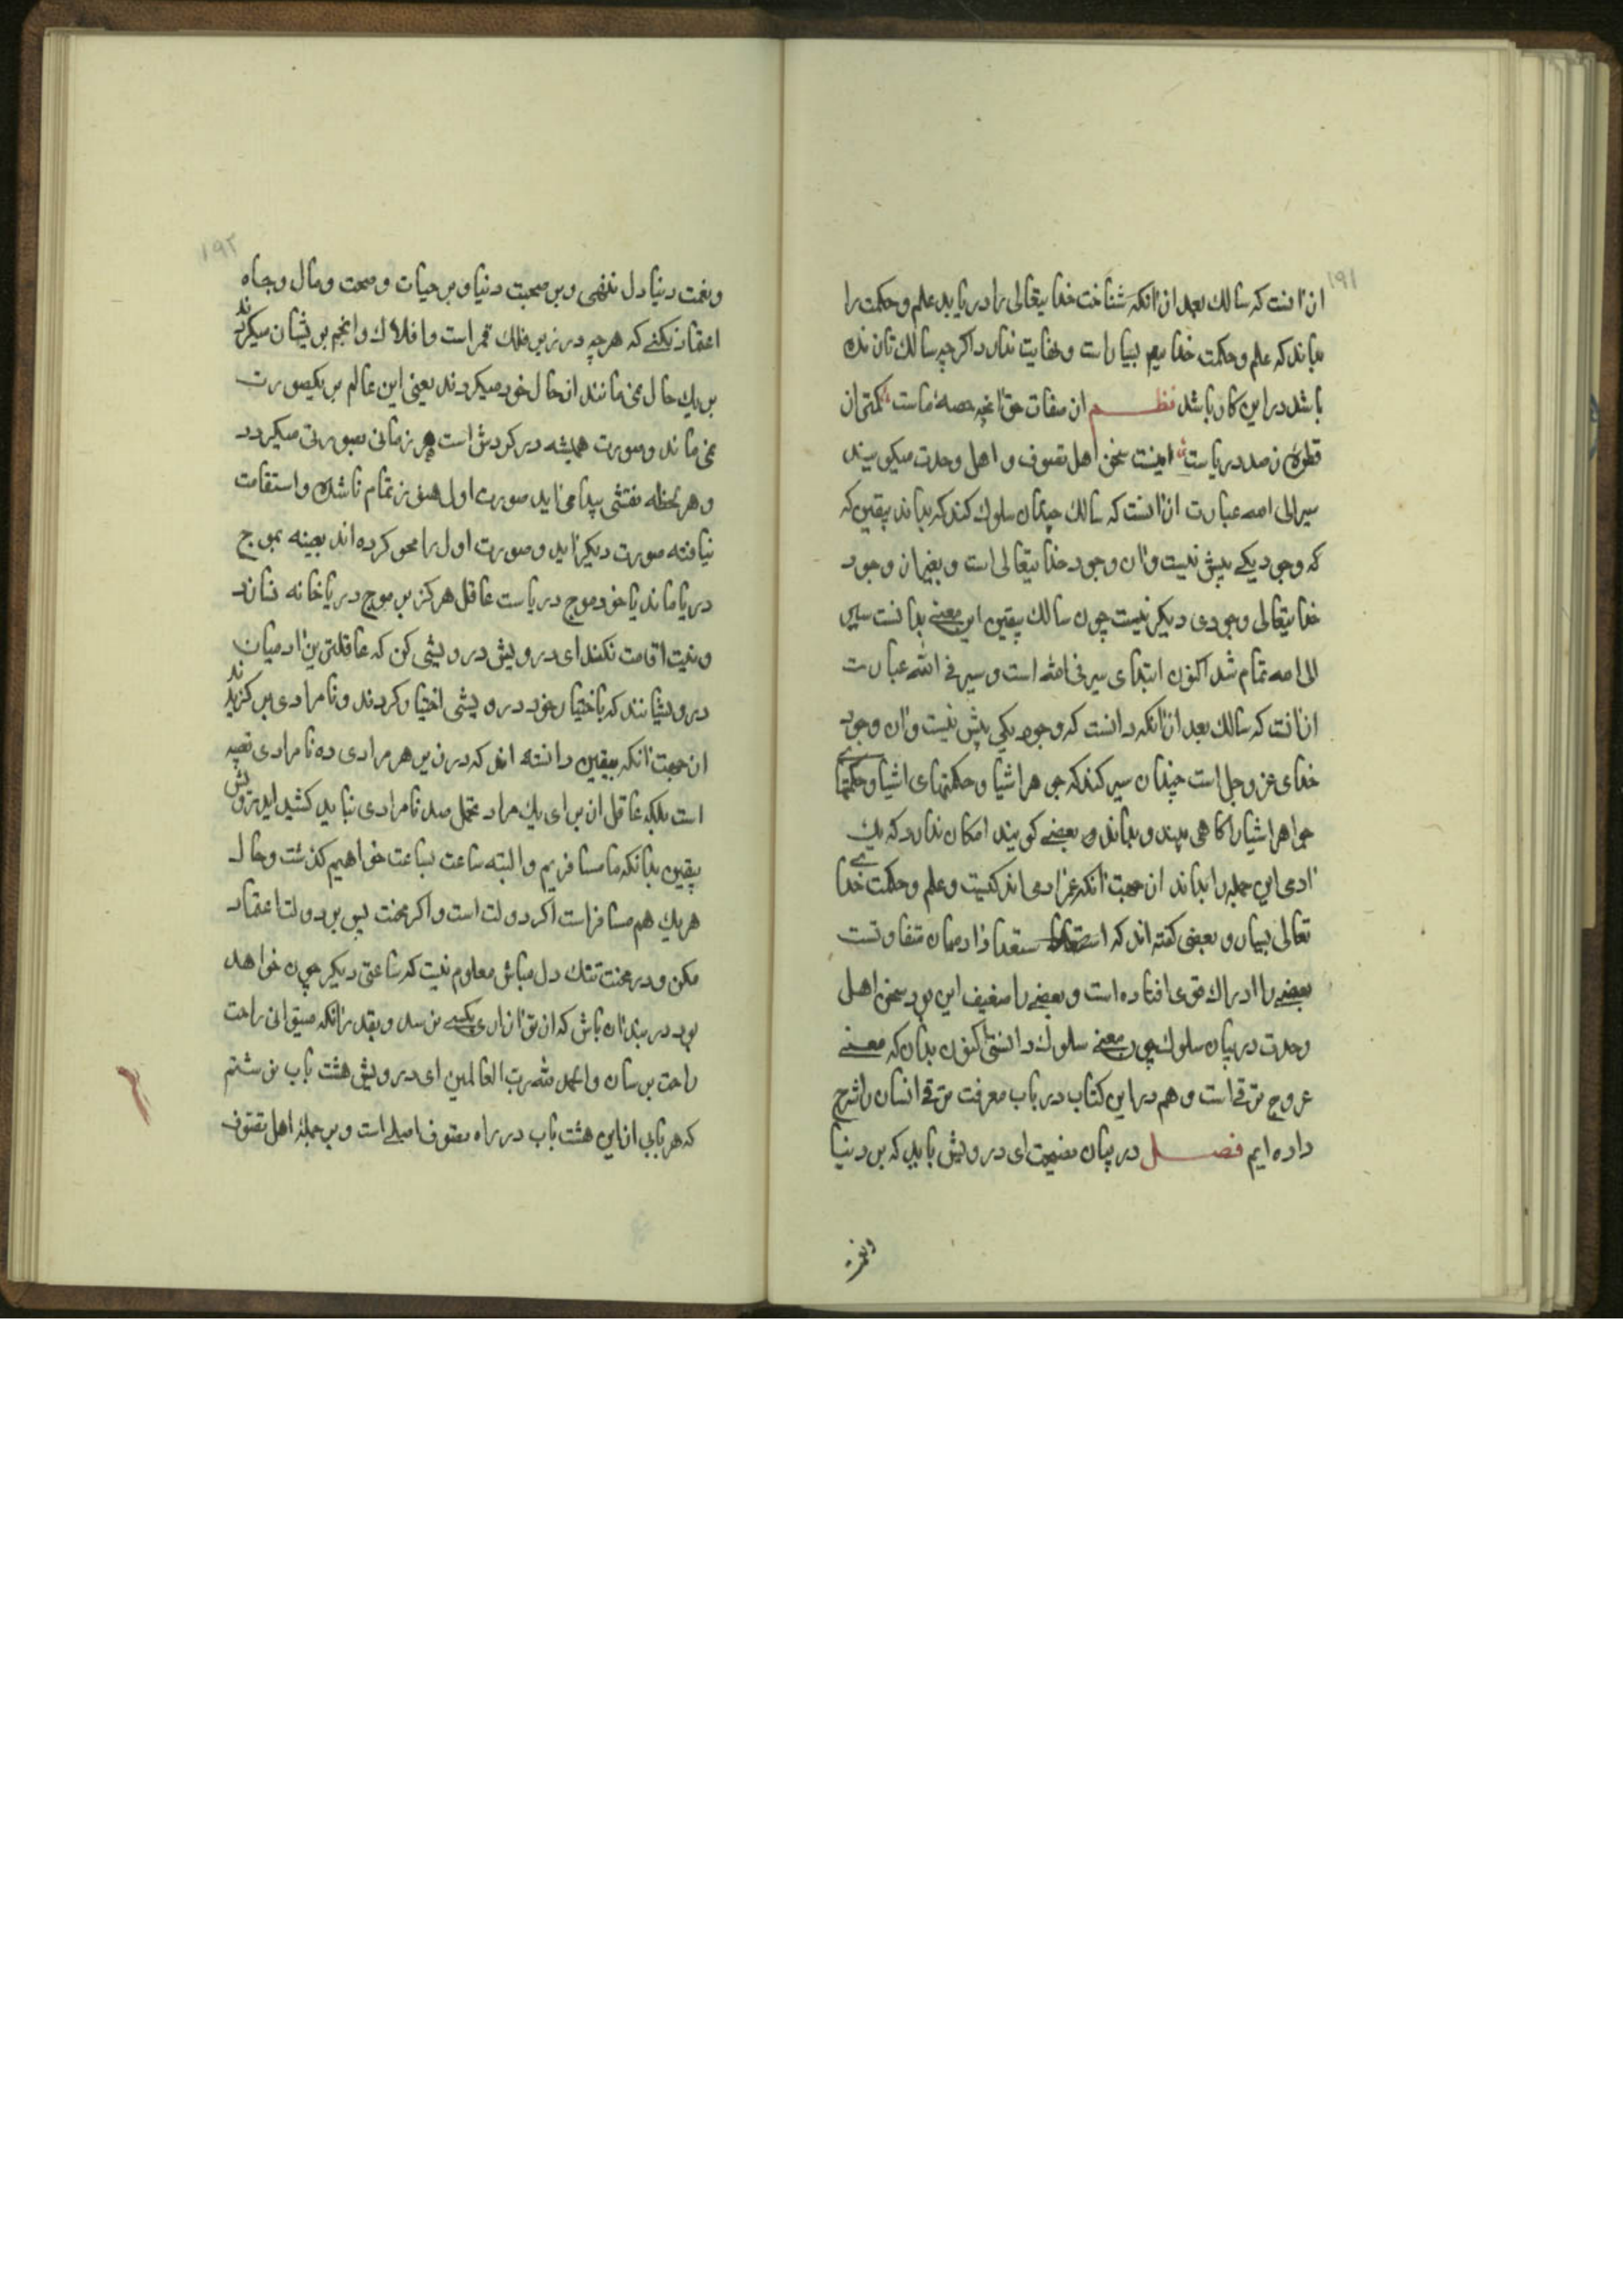 ۱۹۱
ازانست که سالک بعد ازانکه شناخت خدایتعالی را دریابد علم و حکمت را
بداند که علم و حکمت خدایتعم بسیار است و نهایت ندارد اکر چه سالک تا زنده
باشد در این کار باشد نظـــم از صفات حق انچه حصهٔ ماست کمتر از
قطرهٔ ز صد دریاست اینست سخن اهل تصوف و اهل وحدت میکویند
سیر الی الله عبارت ازانست که سالک چندان سلوک کند که بداند بیقین که
که وجود یکے بیش نیست و ان وجود خدایتعالی است و بغیر از وجود
خدایتعالی وجودی دیکر نیست چون سالک بیقین این معنے بدانست سیر
الی الله تمام شد اکنون ابتدای سیر فی الله است و سیر فی الله عبارت
ازانست که سالک بعد ازانکه دانست که وجود یکی بیش نیست و ان وجود
خدای عز و جل است چندان سیر کند که جوهر اشیا و حکمتهای اشیا و حکمتهاے
جواهر اشیا را کاهی ببیند و بداند و بعضے کویند امکان ندارد که یک
ادمی این جمله را بداند از جهت انکه عمر ادمی اندکیست و علم و حکمت خداے
تعالی بسیار و بعضی کفته اند که استعداد ادمیان متفاوتست
بعضے را ادراک قوی افتاده است و بعضے را ضعیف این بود سخن اهل
وحدت در بیان سلوک چون معنے سلوک دانستی اکنون بدان که معنے
عروج ترقے است و هم در این کتاب در باب معرفت ترقے انسان را شرح
داده ایم فصـــل در بیان نصیحت ای درویش باید که بر دنیا
ونعمت
۱۹۲
و نعمت دنیا دل ننهی و بر صحبت دنیا و بر حیات و صحت و مال و جاه
اعتماد نکنے که هر چه در زیر فلک قمر است و افلاک و انجم بر ایشان میکردند
بر یک حال نمی مانند از حال خود میکردند یعنی این عالم بر یکصورت
نمی ماند و صورت همیشه در کردش است هر زمانی بصورتی میکردد
و هر لحظه نقشی پیدا می اید صورت اول هنوز تمام ناشده و استقامت
نیافته صورت دیکر اید و صورت اول را محو کرده اند بعینه بموج
دریا ماند یا خود موج دریاست عاقل هرکز بر موج دریا خانه نسازد
و نیت اقامت نکند ای درویش درویشی کن که عاقلترین ادمیان
درویشانند که باختیار خود درویشی اختیار کردند و نامرادی برکزیدند
از جهت انکه بیقین دانسته اند که در زیر هر مرادی ده نامرادی تعبیه
است بلکه عاقل از برای یک مراد تحمل صد نامرادی نباید کشید ایدرویش
بیقین بدانکه ما مسافریم و البته ساعت بساعت خواهیم کذشت و حال
هر یک هم مسافر است اکر دولت است و اکر محنت پس بر دولت اعتماد
مکن و در محنت تنک دل مباش معلوم نیست که ساعتی دیکر چون خواهد
بود در بند ان باش که از تو ازاری بکسے نرسد و بقدر انکه میتوانی راحت
راحت برسان و الحمد لله رب العالمین ای درویش هشت باب نوشتم
که هر بابی از این هشت باب در راه تصوف اصلے است و بر جملهٔ اهل تصوف